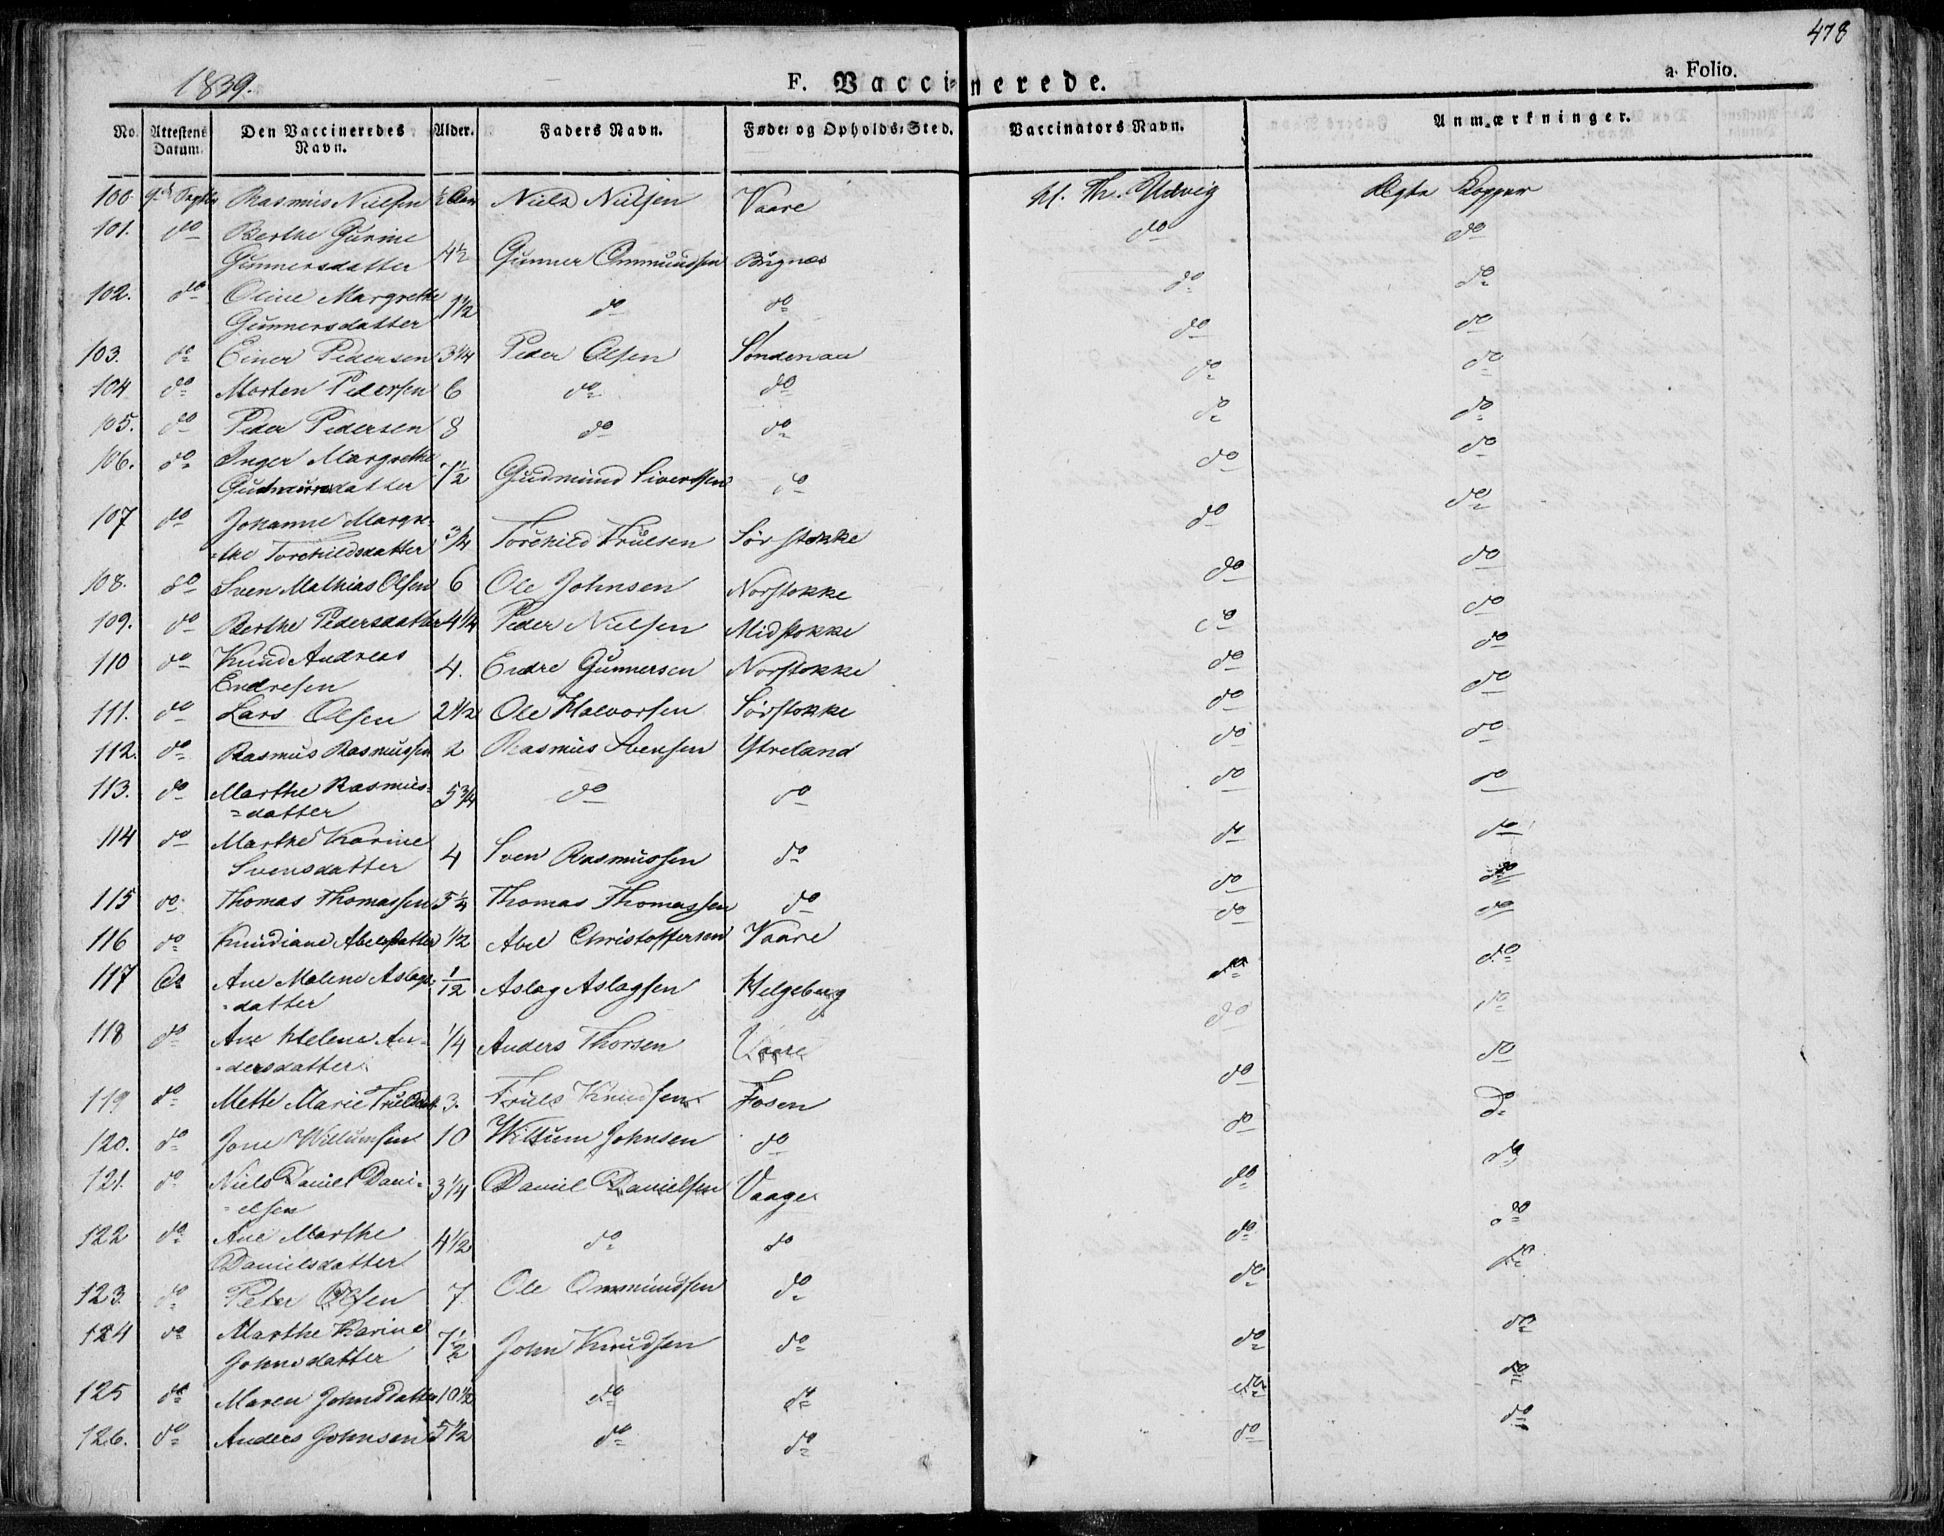 478
1839.
F. Vaccinerede.
a. Folio.
No. Attestens Datum. Den Vaccineredes Navn. Alder. Faders Navn. Føde- og Opholds-Sted. Vaccinators Navn. Anmærkninger.
100. 9de Rasmus Nielsen 1/2 Aar Niels Nielsen Vaare Udvig Ægte Kopper
101. do Berthe Gurine
Gunnersdatter 4 1/2 Gunner Ommundsen Bygnes do do
102. do Oline Margrethe
Gunnersdatter 1 1/2 do do do do
103. do Einer Pedersen 3 1/4 Peder Olsen Søndenaa do do
104 do Morten Pedersen 6 do do do do
105. do Peder Pedersen 8 do do do do
106. do Inger Margrethe
Gudmundsdatter 1 1/2 Gudmund Sivertsen do do do
107 do Johanne Margre-
=the Torchildsdatter 3/4 Torchild Trulsen Sørstokke do do
108. do Sven Mathias Olsen 6 Ole Johnsen Norstokke do do
109. do Berthe Pedersdatter 4 1/4 Peder Nielsen Midstokke do do
110 do Knud Andreas
Endresen 4. Endre Gunnersen Norstokke do do
111. do Lars Olsen 2 1/2 Ole Halvorsen Sørstokke do do
112. do Rasmus Rasmussen 2 Rasmus Svensen Ytreland do do
113. do Marthe Rasmus-
=datter 5 3/4 do do do do
114 do Marthe Karine
Svensdatter 4 Sven Rasmussen do do do
115 do Thomas Thomassen 5 1/4 Thomas Thomassen do do do
116 do Knudiane Abelsdatter 1/2 Abel Christoffersen Vaare do do
117 do Ane Malene Aslags-
=datter 1/12 Aslag Aslagsen Helgeberg do do
118 do Ane Helene An-
=dersdatter 1/4 Anders Thorsen Vaare do do
119 do Mette Marie Trulsdat 3. Truls Knudsen Fosen do do
120. do Jone Willumsen 10 Willum Johnsen do do do
121. do Niels Daniel Dani-
=elsen 3 1/4 Daniel Danielsen Vaage do do
122 do Ane Marthe
Danielsdatter 4 1/2 do do do do
123. do Peter Olsen 7 Ole Ommundsen do do do
124 do Marthe Karine
Johnsdatter 7 1/2 John Knudsen do do do
125 do Maren Johnsdatter 10 1/2 do do do do
126. do Anders Johnsen 5 1/2 do do do do